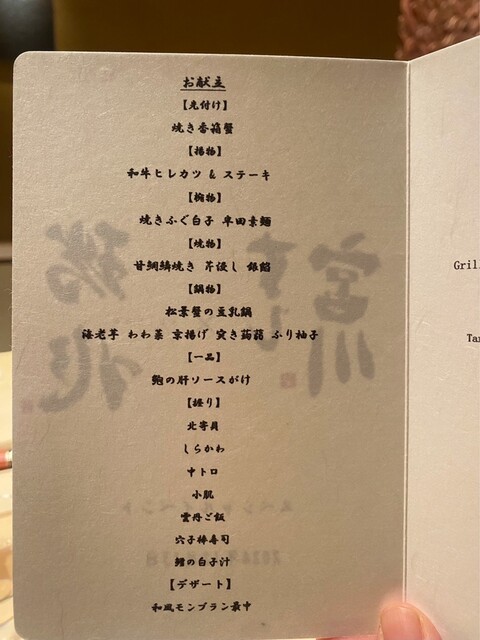 お献立
【先付け】
焼き香箱蟹
【揚物】
和牛ヒレカツ & ステーキ
【椀物】
焼きふぐ白子 半田素麺
【焼物】
甘鯛鱗焼き 芹浸し 銀餡
【鍋物】
松葉蟹の豆乳鍋
海老芋 わわ菜 京揚げ 突き蒟蒻 ふり柚子
【一品】
鮑の肝ソースがけ
【握り】
北寄貝
しらかわ
中トロ
小肌
雲丹ご飯
穴子棒寿司
鱈の白子汁
【デザート】
和風モンブラン最中
Gril
Tar